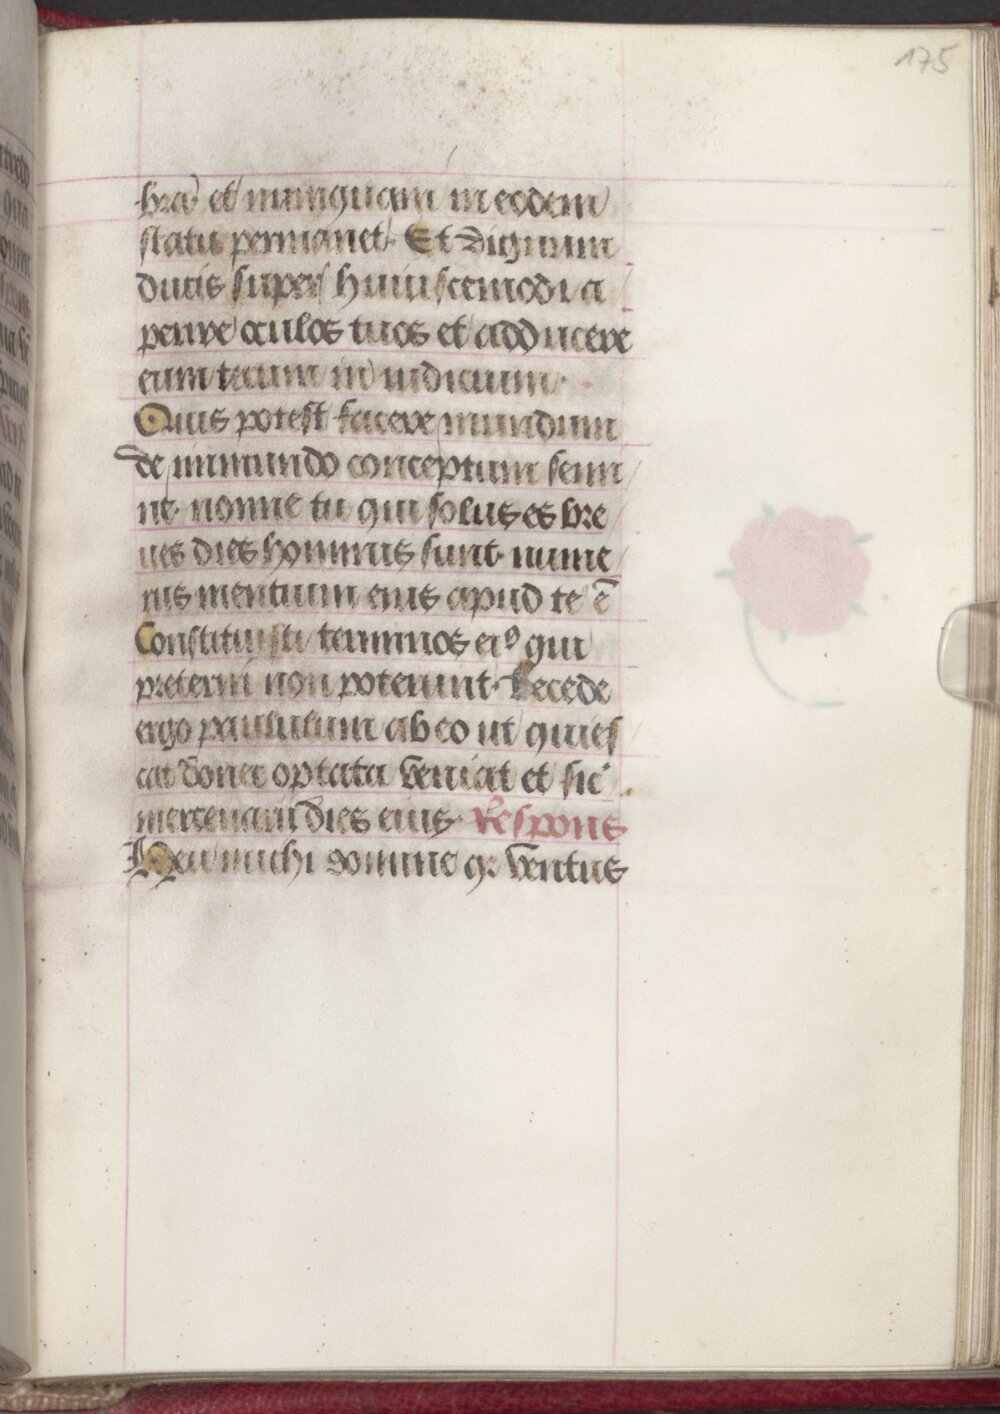 175
bra· et nunquam in eodem
statu permanet· Et dignum
ducis super huiuscemodi a
perire oculos tuos et adducere
eum tecum in iudicium·
Quis potest facere mundum
de inmundo conceptum semi
ne· nonne tu qui solus es bre
ues dies hominis sunt· nume
rus mentium eius apud te ē
Constituisti terminos eiꝰ qui
preteriri non poterunt· Recede
ergo paululum ab eo ut quies
cat donec optata veniat et sic̄
mercenarii dies eius· Respons
Heu michi domine qꝛ ventus